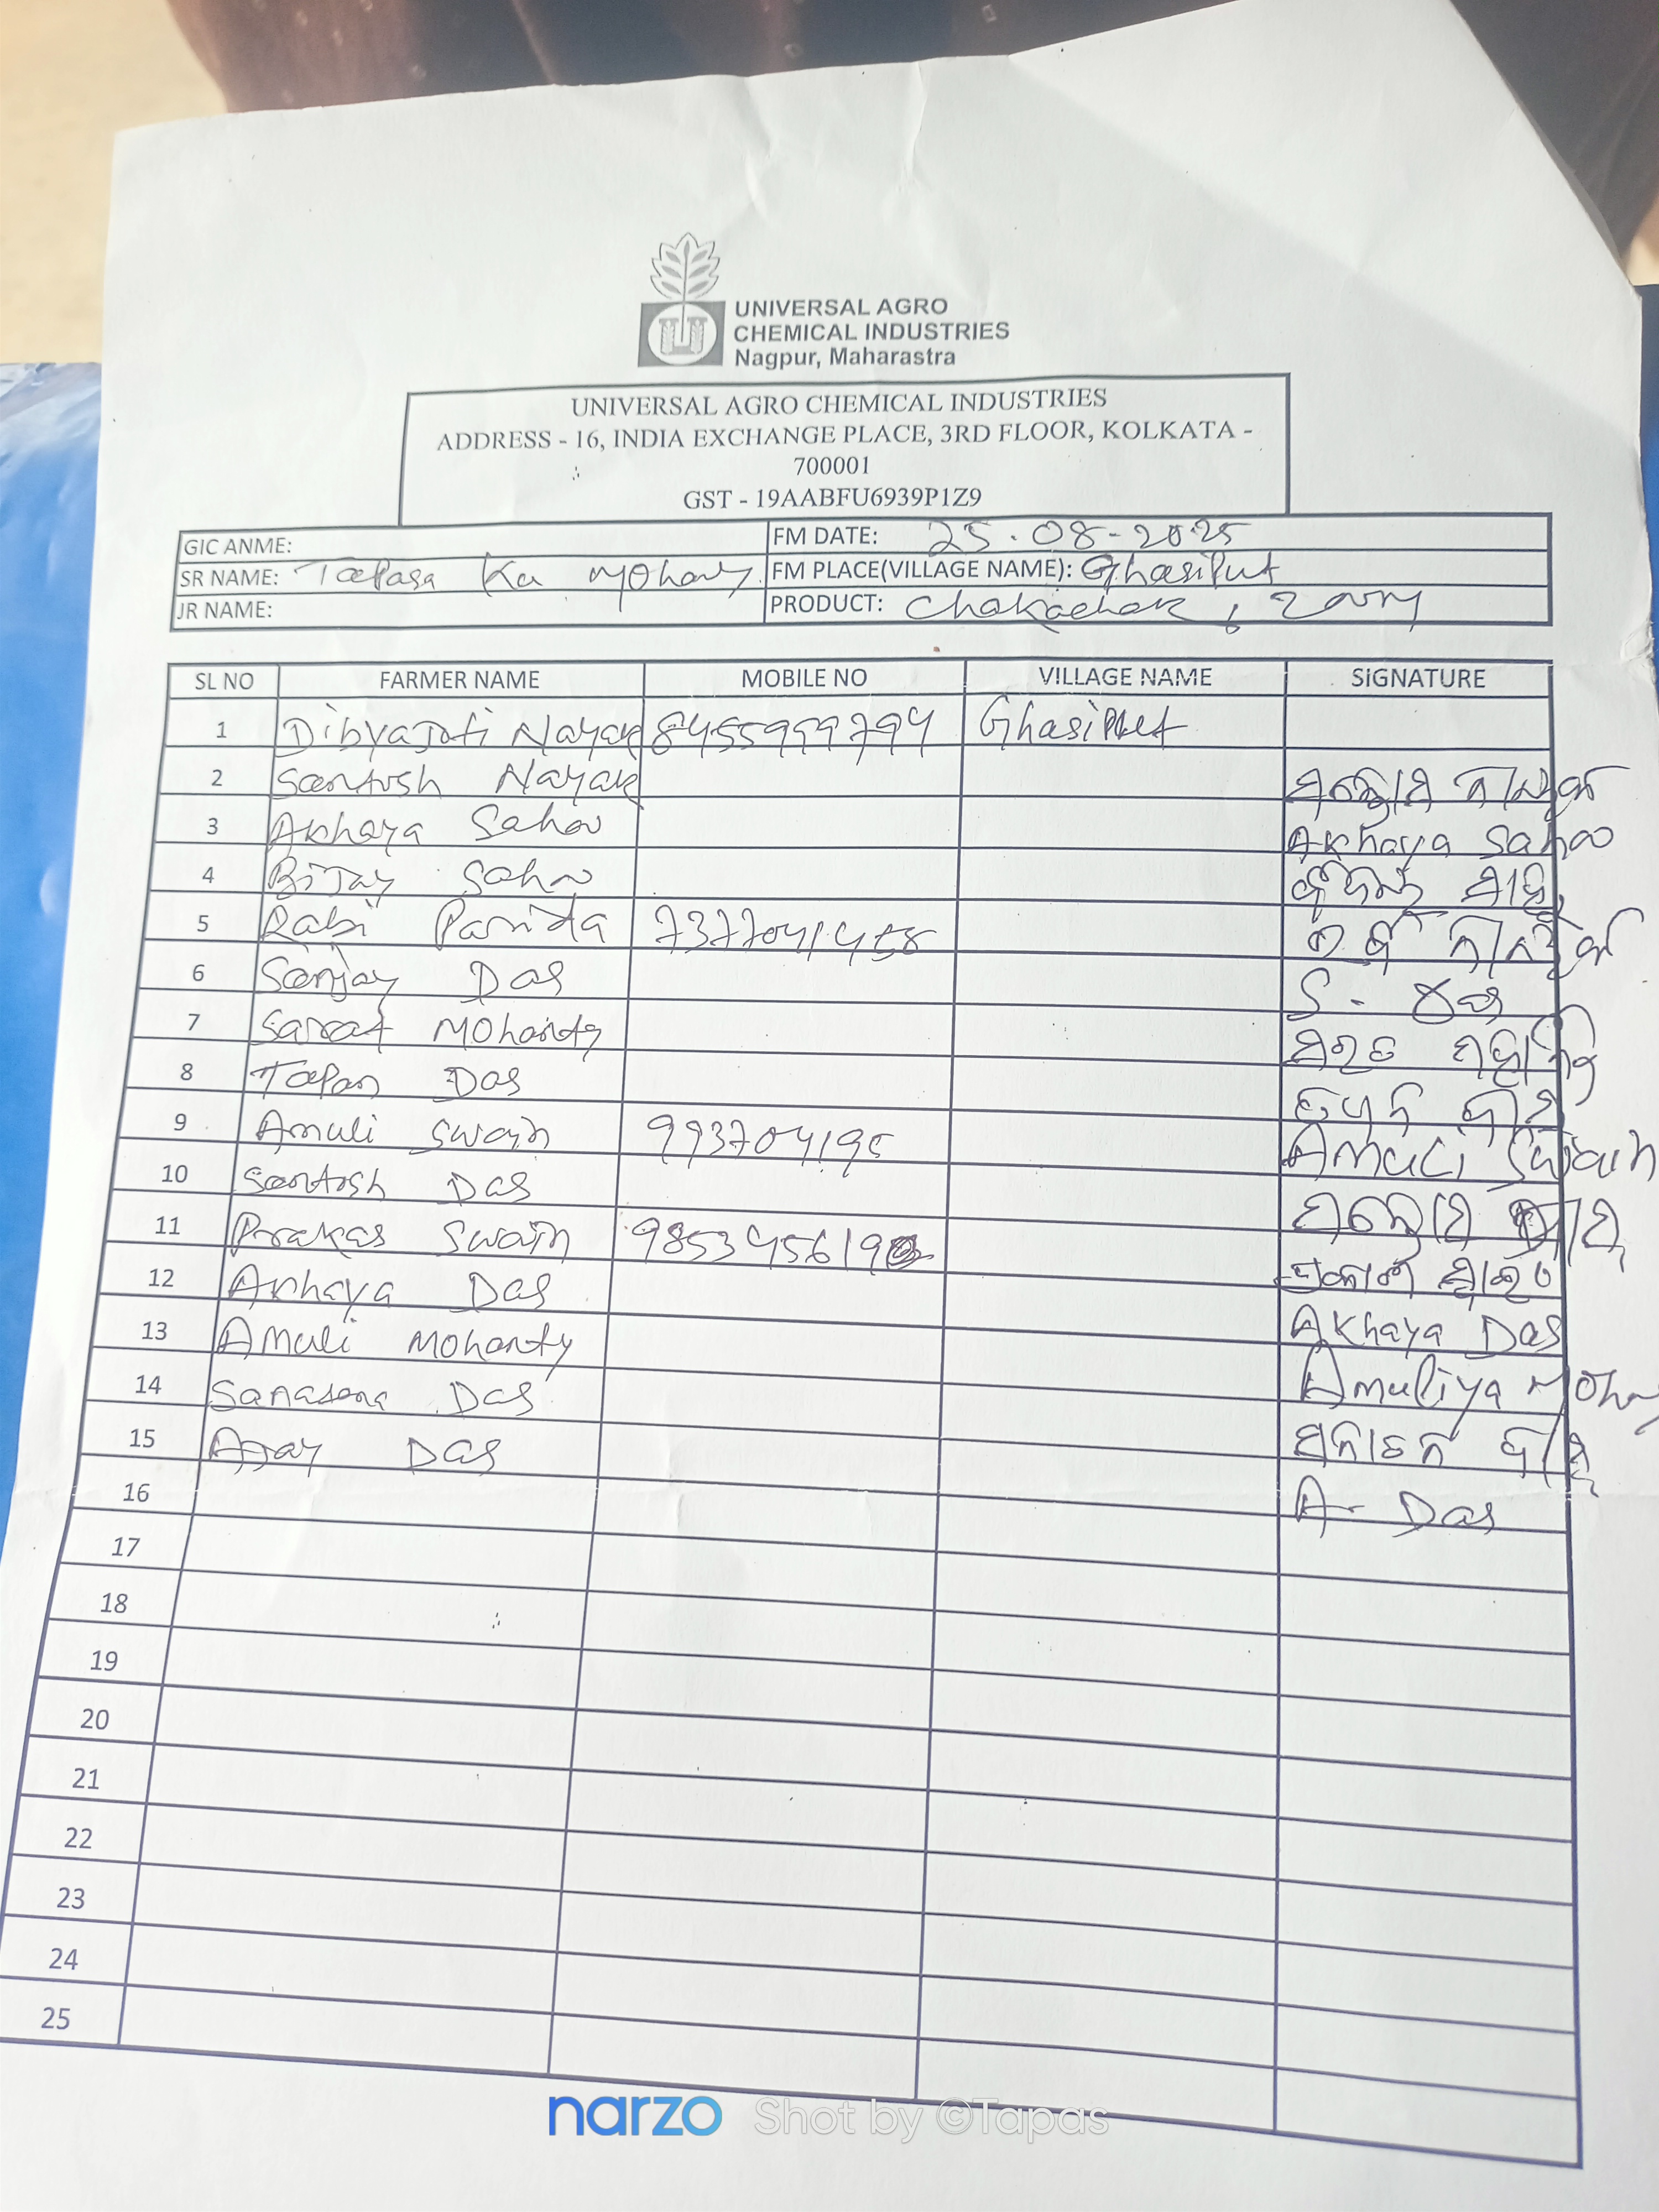 UNIVERSAL AGRO
CHEMICAL INDUSTRIES
Nagpur, Maharastra
UNIVERSAL AGRO CHEMICAL INDUSTRIES
ADDRESS - 16, INDIA EXCHANGE PLACE, 3RD FLOOR, KOLKATA -
700001
GST - 19AABFU6939P1Z9
GIC ANME: FM DATE: 25-08-2025
SR NAME: Tapasa Ku Mohanty FM PLACE(VILLAGE NAME): Ghasiput
JR NAME: PRODUCT: Chakachak,
SL NO FARMER NAME MOBILE NO VILLAGE NAME SIGNATURE
1 Dibyajoti Nayak Ghasiput
2 Santosh Nayak ସନ୍ତୋଷ ନାୟକ
3 Akhaya Sahoo Akhaya Sahoo
4 Bijay Sahu
5 Rabi Parida
6 Sanjay Das S. ଦାସ
7 Sarat Mohanty ସରତ ମହାନ୍ତି
8 Tapan Das ତପନ ଦାସ
9 Amuli Swain 993704195 Amuli Swain
10 Santosh Das ସନ୍ତୋଷ ଦାସ
11 Prakas Swain
12 Akhaya Das Akhaya Das
13 Amuli Mohanty Amuliya Moha
14 Sanasana Das ସନାତନ ଦାସ
15 Ajay Das A- Das
16
17
18
19
20
21
22
23
24
25
narzo Shot by ©Tapas